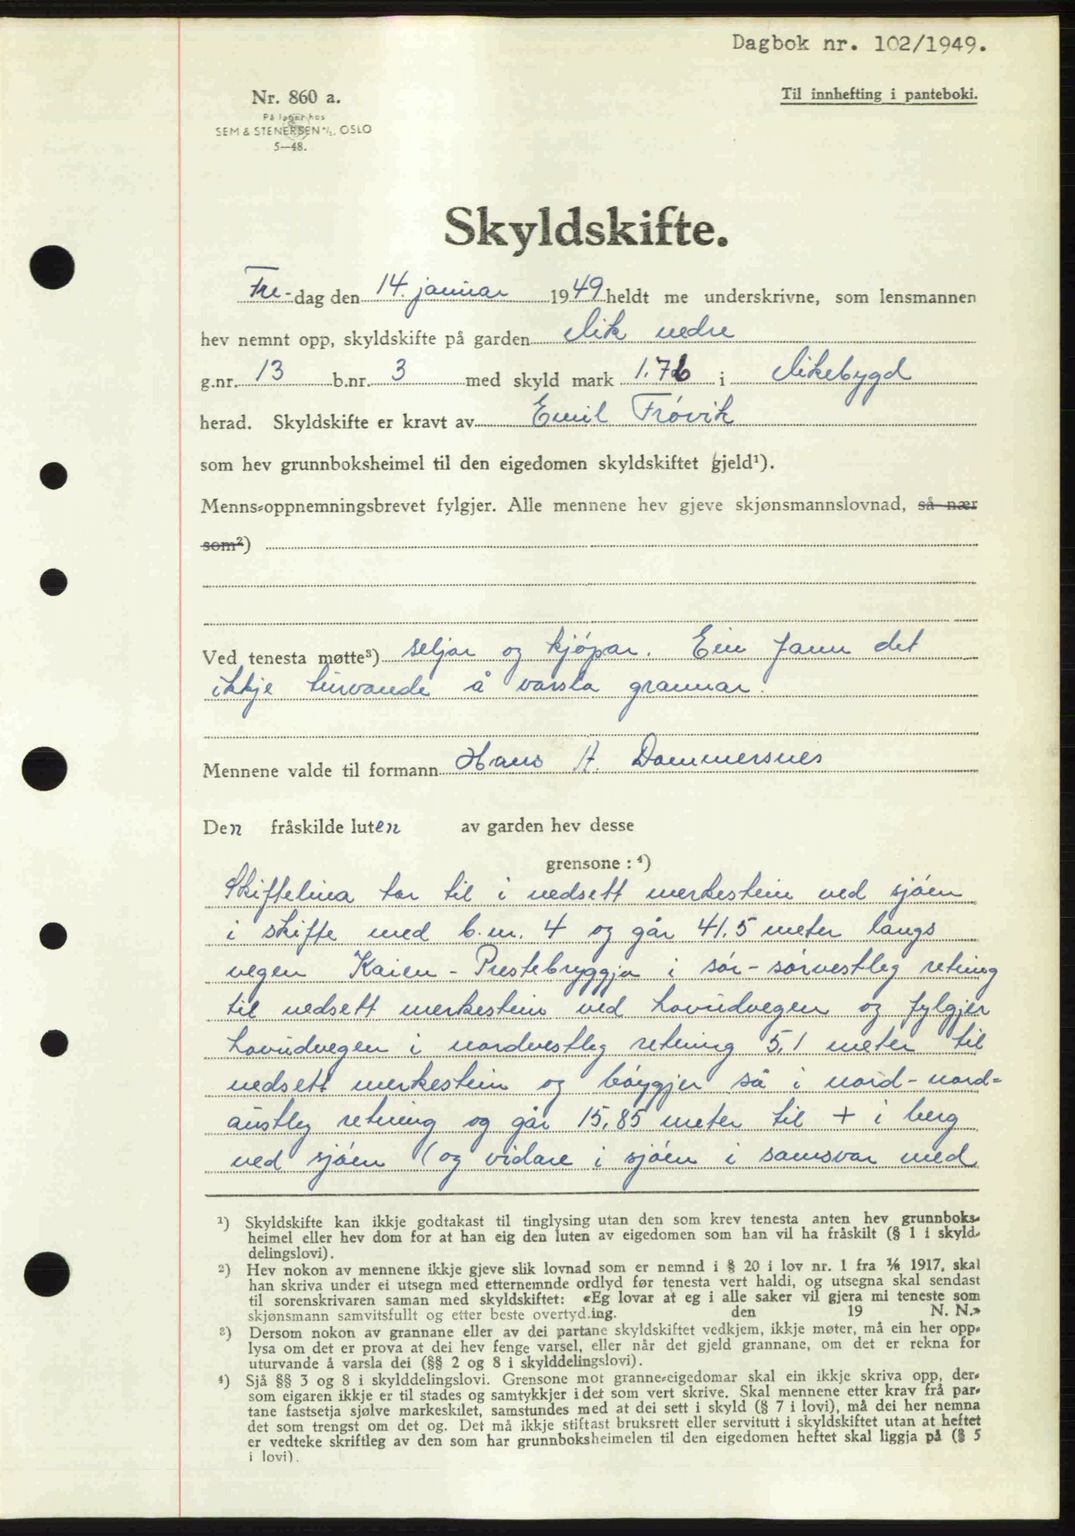 Dagbok nr. 102/1949.
Nr. 860 a.
Til innhefting i panteboki.
På lager hos
SEM & STENERSEN A/S, OSLO
5—48.
Skyldskifte.
Fre-dag den 14. januar 1949 heldt me underskrivne, som lensmannen
hev nemnt opp, skyldskifte på garden Vik nedre
g.nr. 13 b.nr. 3 med skyld mark 1.76 i Vikebygd
herad. Skyldskifte er kravt av Emil Frøvik
som hev grunnboksheimel til den eigedomen skyldskiftet gjeld¹).
Menns-oppnemningsbrevet fylgjer. Alle mennene hev gjeve skjønsmannslovnad, så nær
som²)
Ved tenesta møtte³) seljar og kjøpar. Ein fann det
ikkje turvande å varsla grannar.
Mennene valde til formann Hans A. Dommersnes
Den fråskilde luten av garden hev desse
grensone : ⁴)
Skiftelina tar til i nedsett merkestein ved sjøen
i skifte med b.nr. 4 og går 41.5 meter langs
vegen Kaien - Prestebryggja i sør-sørvestleg retning
til nedsett merkestein ved hovudvegen og fylgjer
hovudvegen i nordvestleg retning 5,1 meter til
nedsett merkestein og bøygjer så i nord-nord-
austleg retning og går 15,85 meter til + i berg
ved sjøen (og vidare i sjøen i samsvar med
¹) Skyldskifte kan ikkje godtakast til tinglysing utan den som krev tenesta anten hev grunnboks-
heimel eller hev dom for at han eig den luten av eigedomen som han vil ha fråskilt (§ 1 i skyld-
delingslovi).
²) Hev nokon av mennene ikkje gjeve slik lovnad som er nemnd i § 20 i lov nr. 1 fra 1/6 1917, skal
han skriva under ei utsegn med etternemnde ordlyd før tenesta vert haldi, og utsegna skal sendast
til sorenskrivaren saman med skyldskiftet: «Eg lovar at eg i alle saker vil gjera mi teneste som
skjønsmann samvitsfullt og etter beste overtyd.ing. den 19 N. N.»
³) Dersom nokon av grannane eller av dei partane skyldskiftet vedkjem, ikkje møter, må ein her opp-
lysa om det er prova at dei hev fenge varsel, eller når det gjeld grannane, om det er rekna for
uturvande å varsla dei (§§ 2 og 8 i skylddelingslovi).
⁴) Sjå §§ 3 og 8 i skylddelingslovi. Grensone mot granne-eigedomar skal ein ikkje skriva opp, der-
som eigaren ikkje er til stades og samtykkjer i det som vert skrive. Skal mennene etter krav frå par-
tane fastsetja sjølve markeskilet, samstundes med at dei sett i skyld (§ 7 i lovi), må dei her nemna
det som trengst om det og. Det må ikkje stiftast bruksrett eller servitutt i skyldskiftet utan at heftet
er vedteke skriftleg av den som har grunnboksheimelen til den eigedomen heftet skal liggja på (§ 5
i lovi).